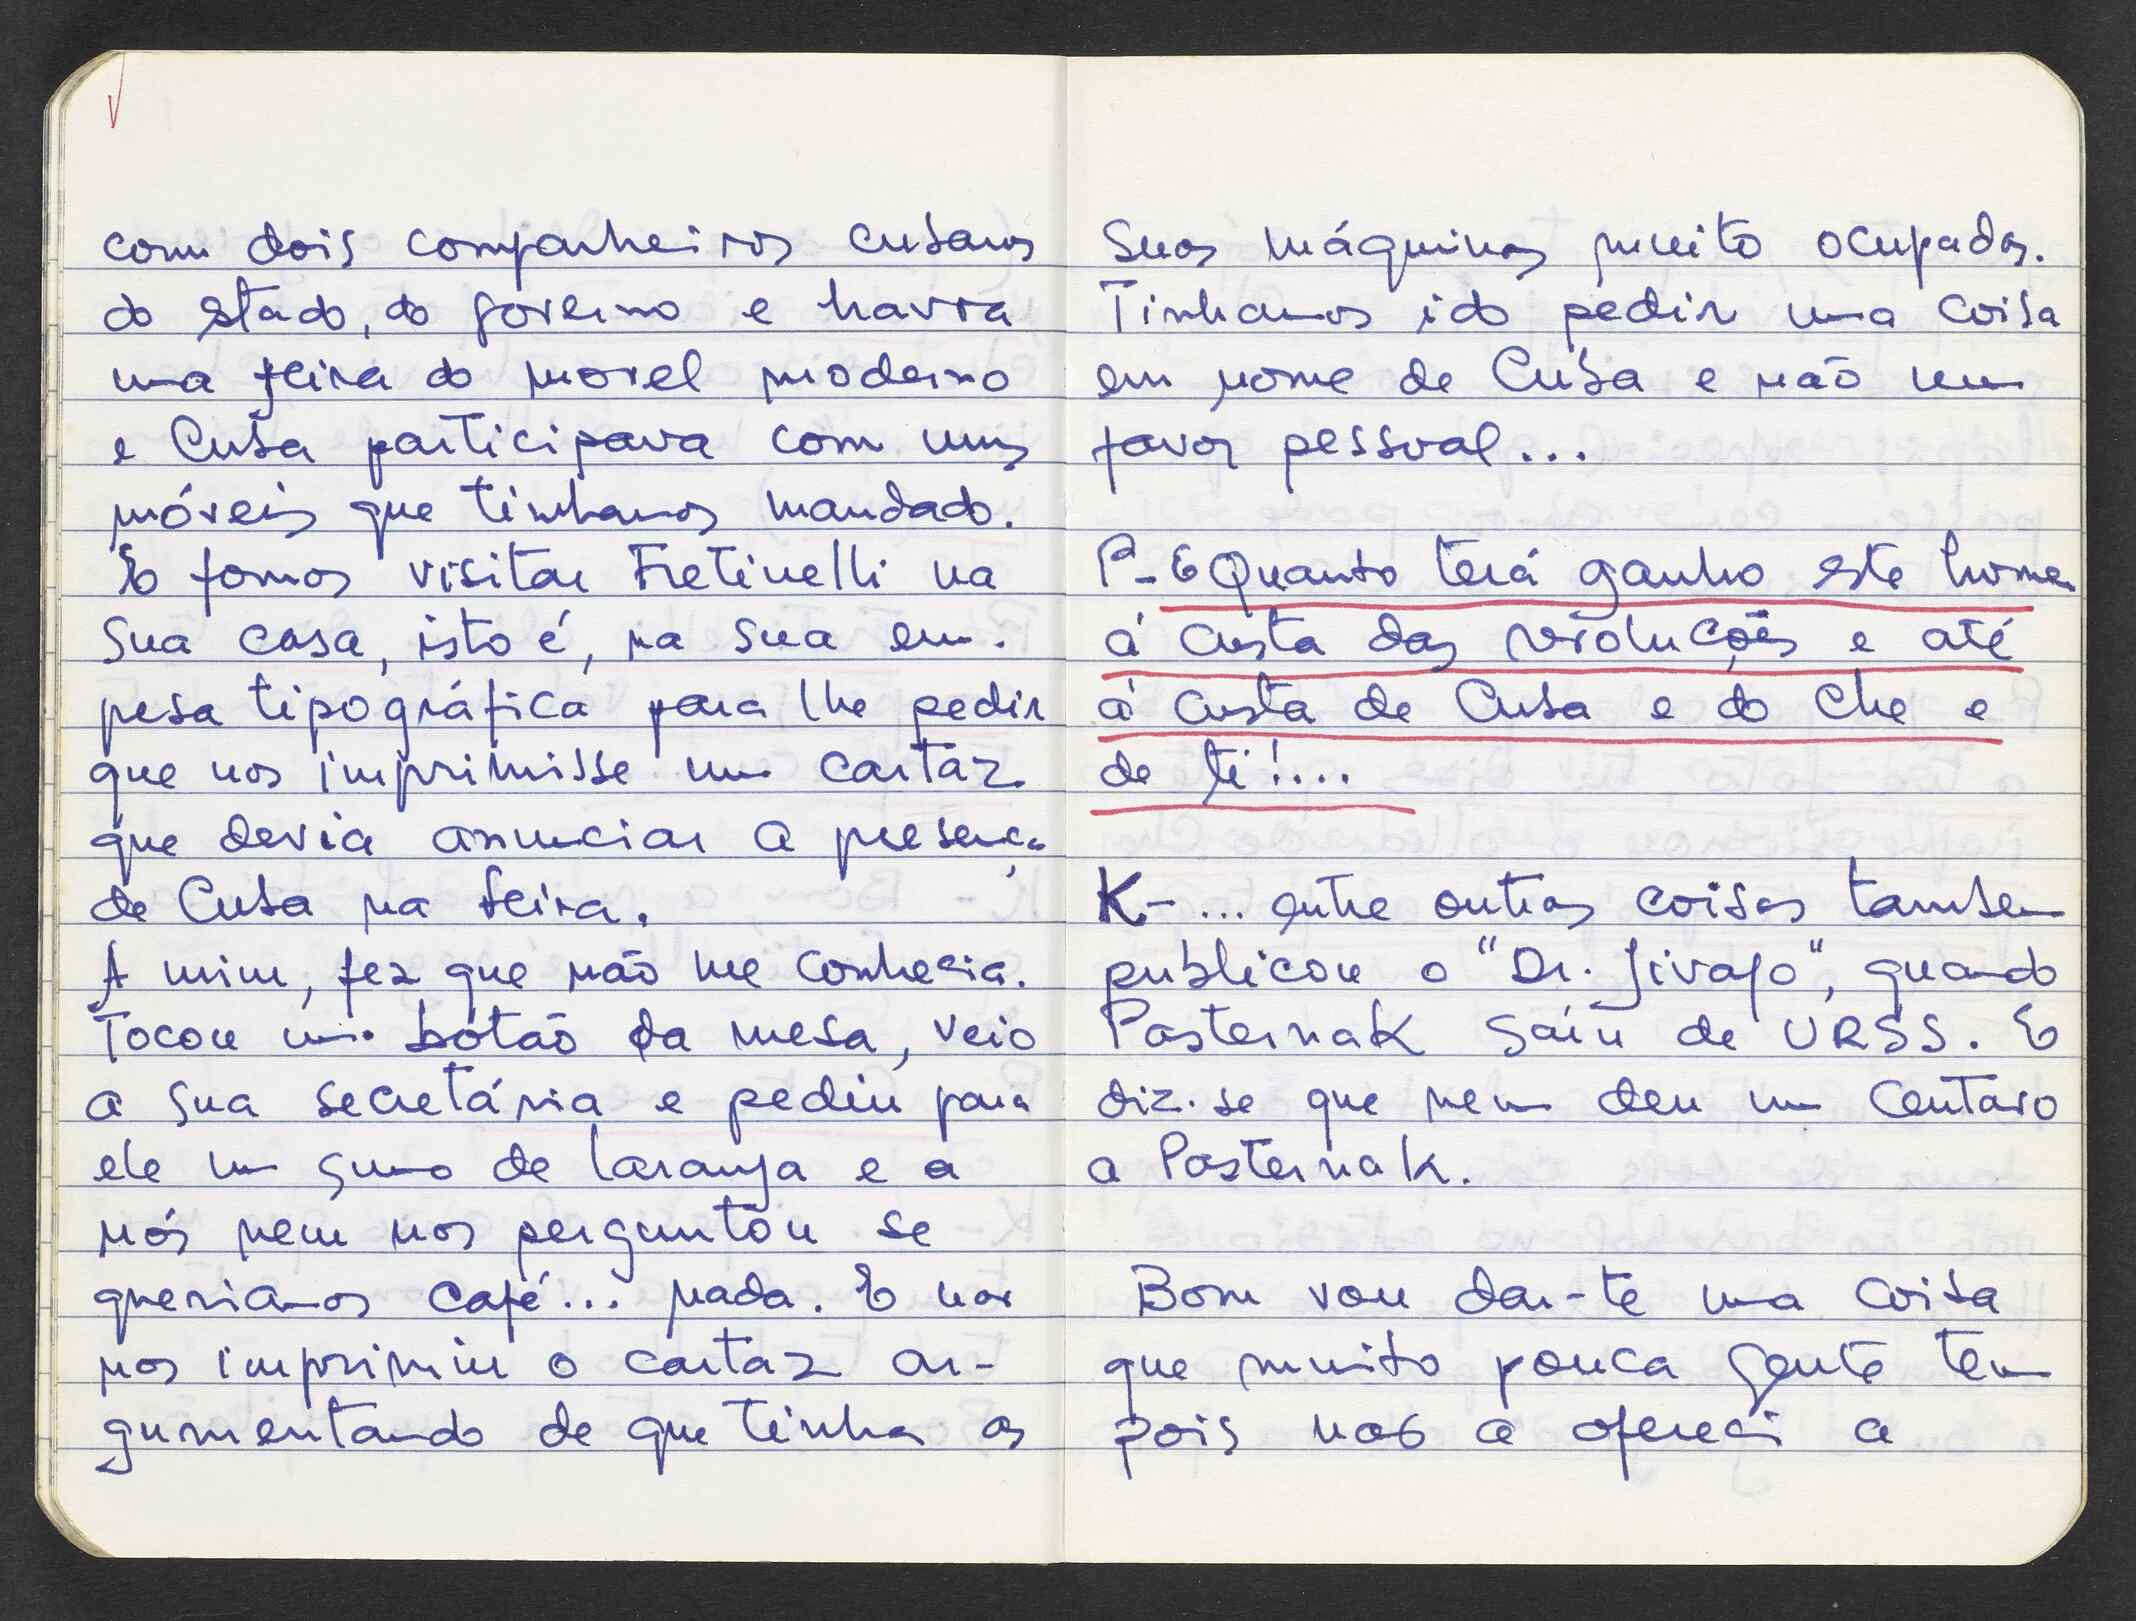 com dois companheiros cubanos
do estado, do governo e havia
uma feira do movel moderno
e Cuba participava com uns
móveis que tinhamos mandado.
E fomos visitar Fretinelli na
sua casa, isto é, na sua em-
presa tipográfica para lhe pedir
que nos imprimisse um cartaz
que devia anunciar a presença
de Cuba na feira.
A mim, fez que não me conhecia.
Tocou um botão da mesa, veio
a sua secretária e pediu para
ele um sumo de laranja e a
nós nem nos perguntou se
queriamos café... nada. E nos
nos imprimiu o cartaz ar-
gumentando de que tinha as
suas máquinas muito ocupadas.
Tinhamos ido pedir uma coisa
em nome de Cuba e não um
favor pessoal...
P- E Quanto terá ganho este homem
á custa das revoluções e até
á custa de Cuba e do Che e
de ti!...
K- ... entre outras coisas tambem
publicou o "Dr. Jivago", quando
Pasternak saíu de URSS. E
diz-se que nem deu um centavo
a Pasternak.
Bom vou dar-te uma coisa
que muito pouca gente tem
pois nao a ofereci a